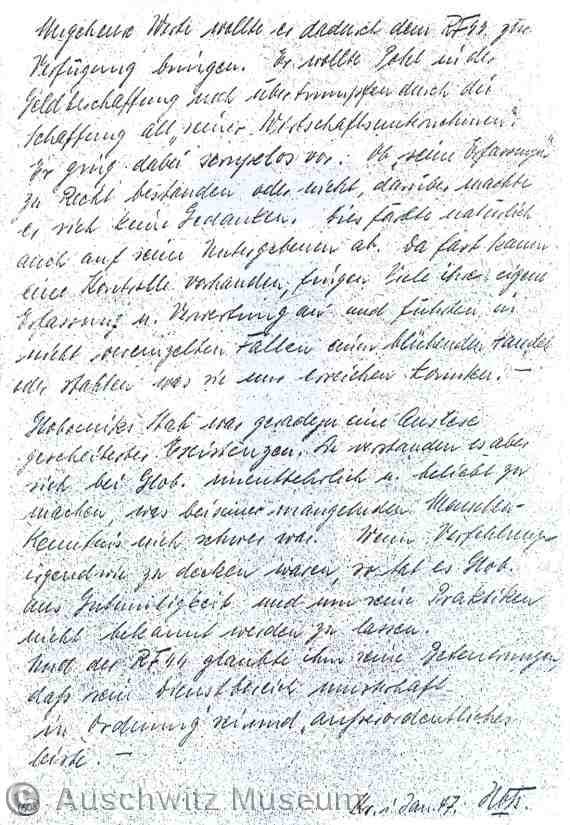 Ungeheure Werte wollte er dadurch dem RFSS zur
Verfügung bringen. Er wollte Pohl in der
Geldbeschaffung noch übertrumpfen durch die
Schaffung all „seiner Wirtschaftsunternehmen".
Er ging dabei skrupellos vor. Ob seine „Erfassungen"
zu Recht bestanden oder nicht, darüber machte
er sich keine Gedanken. Dies färbte natürlich
auch auf seine Untergebenen ab. Da fast kaum
eine Kontrolle vorhanden, fingen Viele ihre eigene
Erfassung u. Verwertung an und führten in
nicht vereinzelten Fällen einen blühenden Handel
oder stahlen was sie nur erreichen konnten. —
Globocniks Stab war geradezu eine Auslese
gescheiterter Existenzen. Sie verstanden es aber
sich bei Glob. unentbehrlich u. beliebt zu
machen, was bei seiner mangelnden Menschen-
Kenntnis nicht schwer war. Wenn Verfehlungen
irgendwie zu decken waren, so tat es Glob.
aus Gutmütigkeit und um seine Praktiken
nicht bekannt werden zu lassen.
Und der RFSS glaubte ihm seine Beteuerungen,
daß sein Dienstbereich musterhaft
in Ordnung sei und „außerordentliches
leiste. —
Kr. i. Jan. 47. Höß.
© Auschwitz Museum